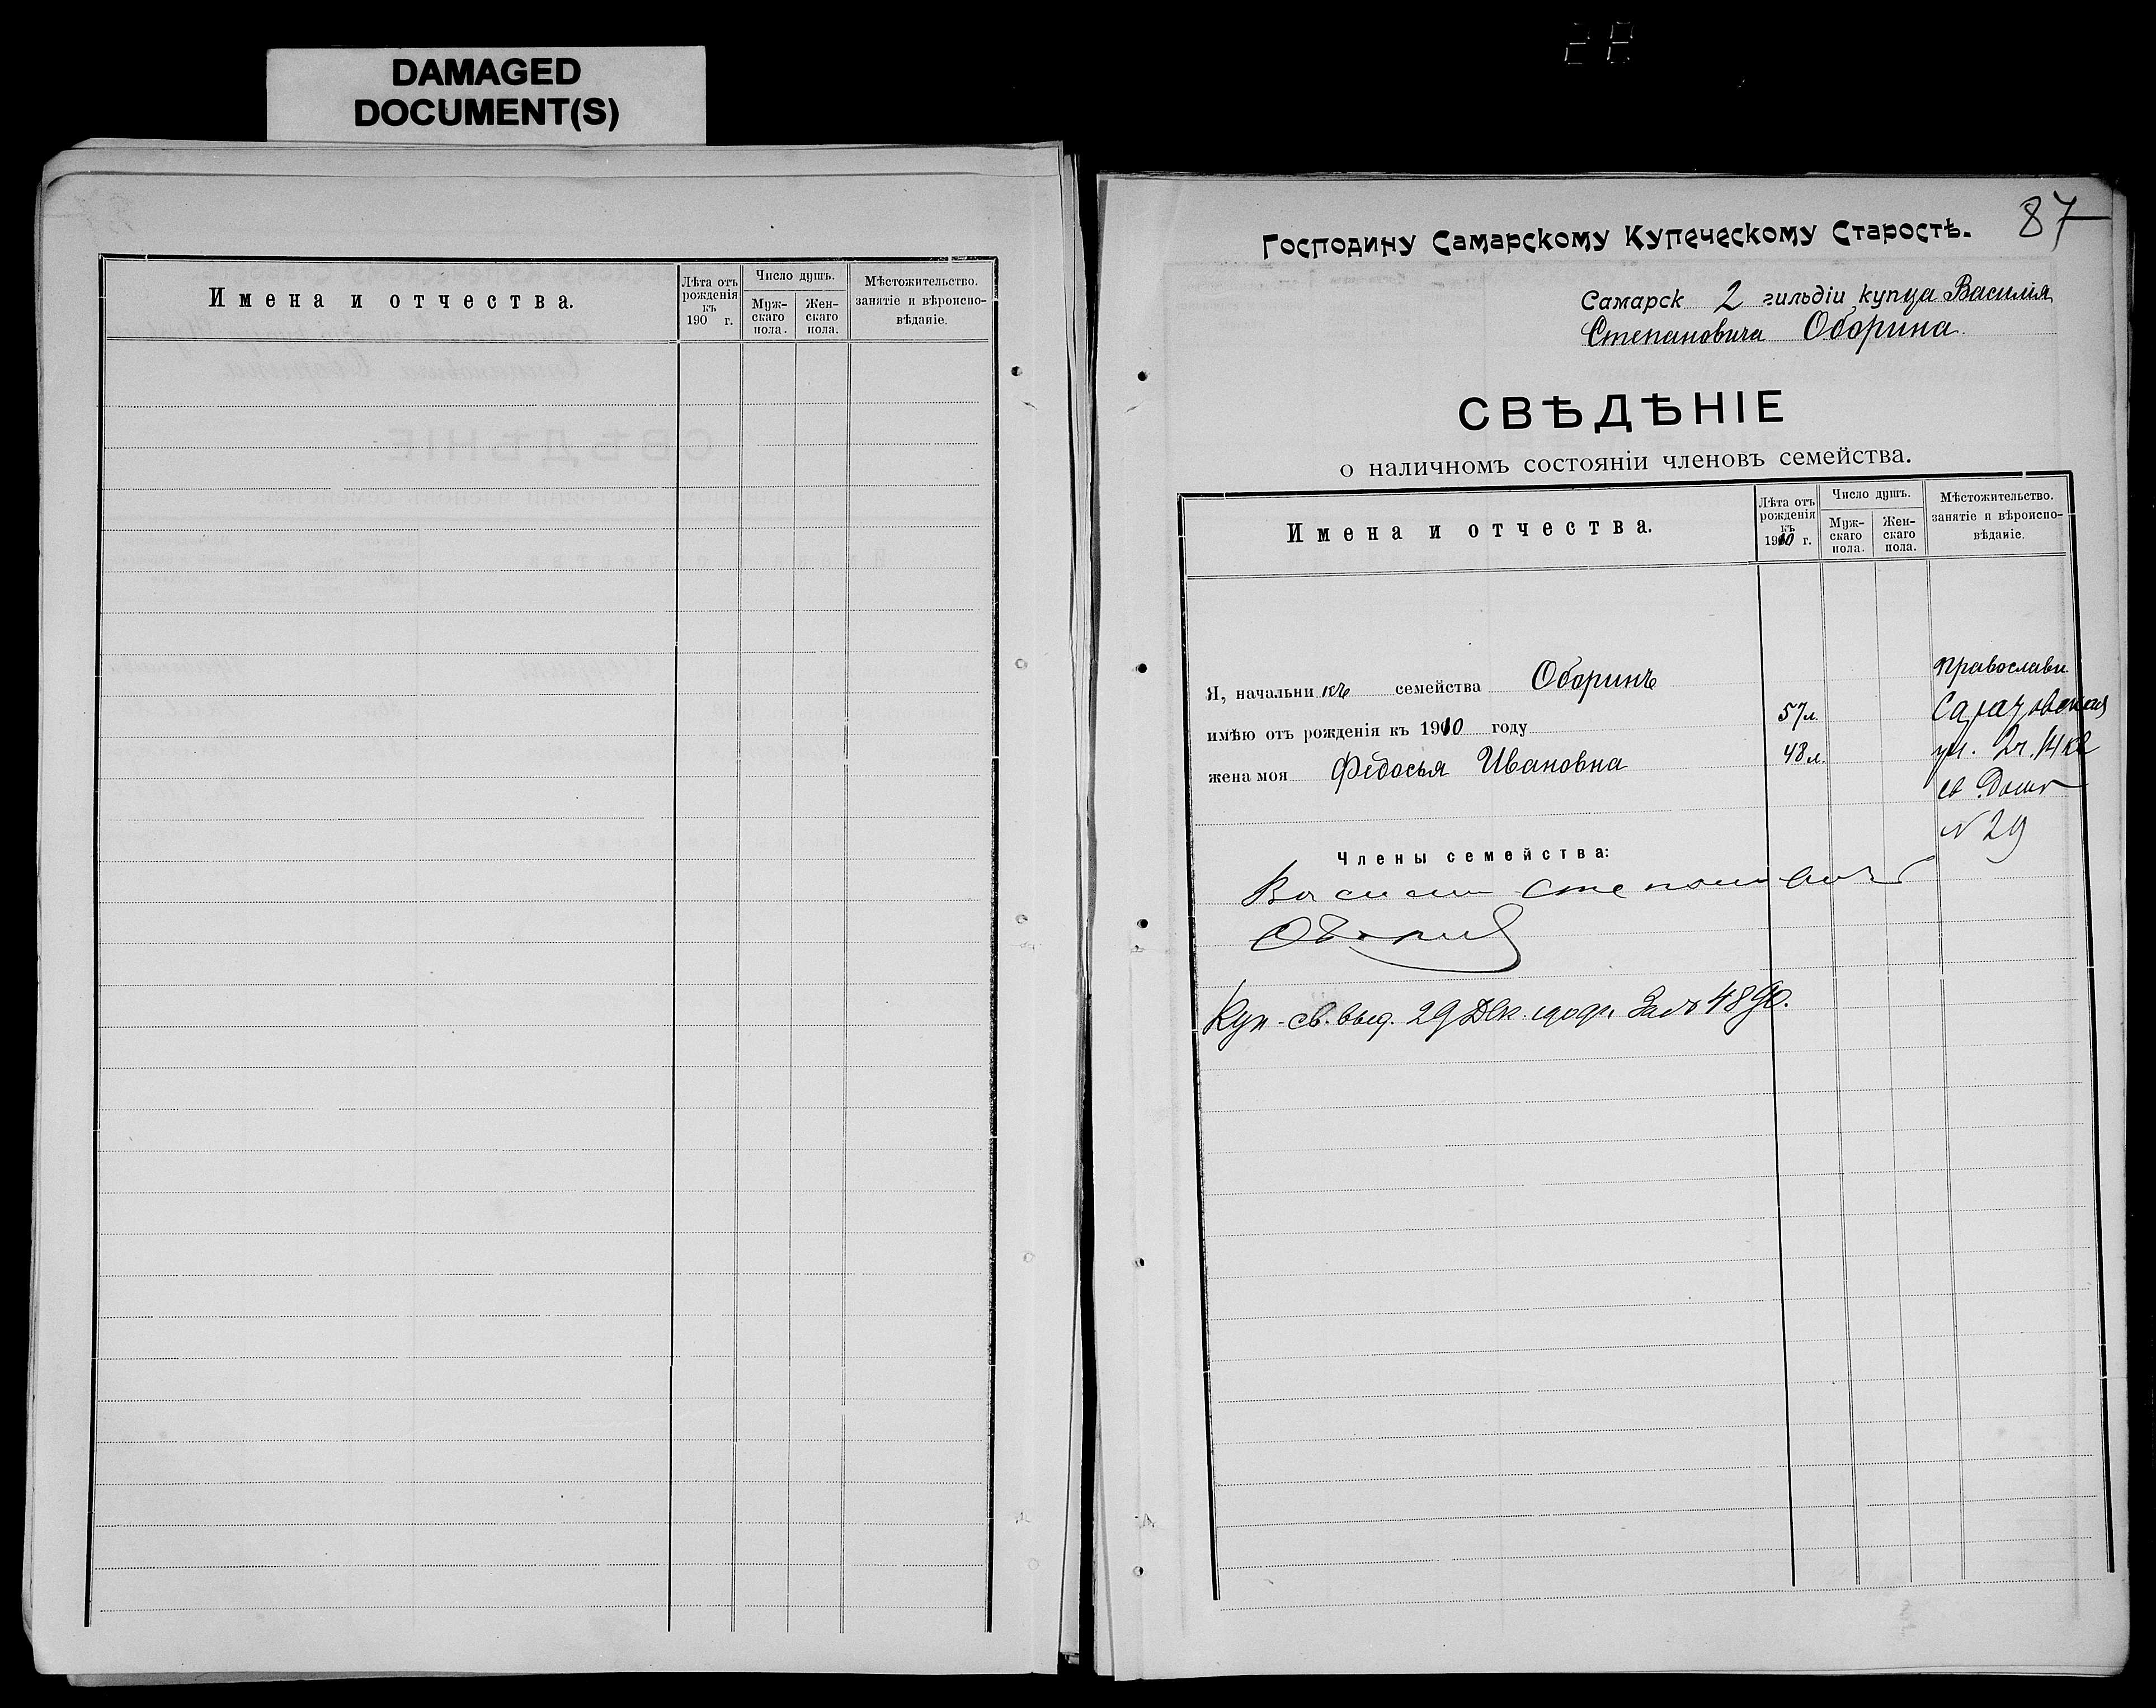 DAMAGED
DOCUMENT(S)
Имена и отчества.
Лѣта отъ рожденія къ 190 г.
Число душъ.
Мужскаго пола.
Женскаго пола.
Мѣстожительство. занятіе и вѣроисповѣданіе.
87
Господину Самарскому Купеческому Старостѣ.
Самарск 2 гильдіи купца Василія
Степановича Оборина
СВѢДѢНІЕ
о наличномъ состояніи членовъ семейства.
Имена и отчества.
Лѣта отъ рожденія къ 1910 г.
Число душъ.
Мужскаго пола.
Женскаго пола.
Мѣстожительство. занятіе и вѣроисповѣданіе.
Я, начальникъ семейства Оборинъ
Православн.
имѣю отъ рожденія къ 1910 году 57 л. Саратовская
жена моя Федосья Ивановна 48 л. ул. 2 ч. 14 кв
св Домъ
№ 29
Члены семейства:
Василий Степанович
Оборин
Куп. св. выд. 29 Дек. 1909 г. За № 4890.